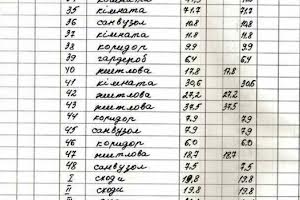 35 кімната 71.7 71.7
36 санвузол 10.8 10.8
37 кімната 11.8 11.8
38 коридор 9.9 9.9
39 гардероб 6.4 6.4
40 житлова 17.8 17.8
41 кімната 30.6 30.6
42 житлова 27.2 27.2
43 житлова 37.5 37.5
44 коридор 7.9 7.9
45 санвузол 7.9 7.9
46 коридор 6.0 6.0
47 житлова 18.7 18.7
48 санвузол 7.5 7.5
I сходи 19.8 19.8
II сходи 19.8 19.8
III сходи 19.8 19.8